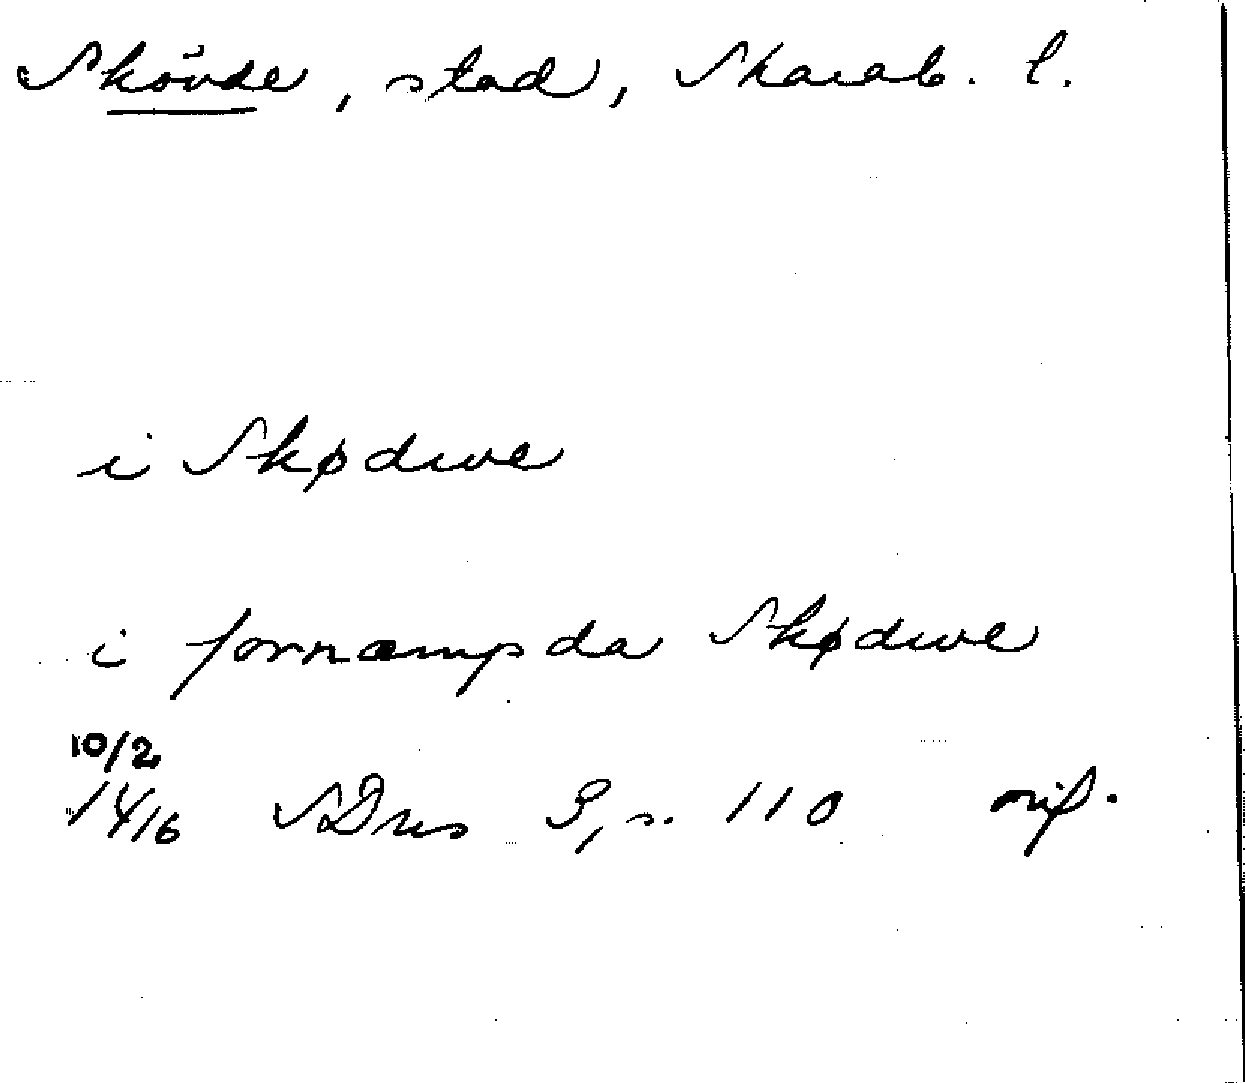 Skövde, stad, Skarab. l.
i Skødwe
i fornæmpda Skødwe
10/2
1416 SDns 3, s. 110 orig.